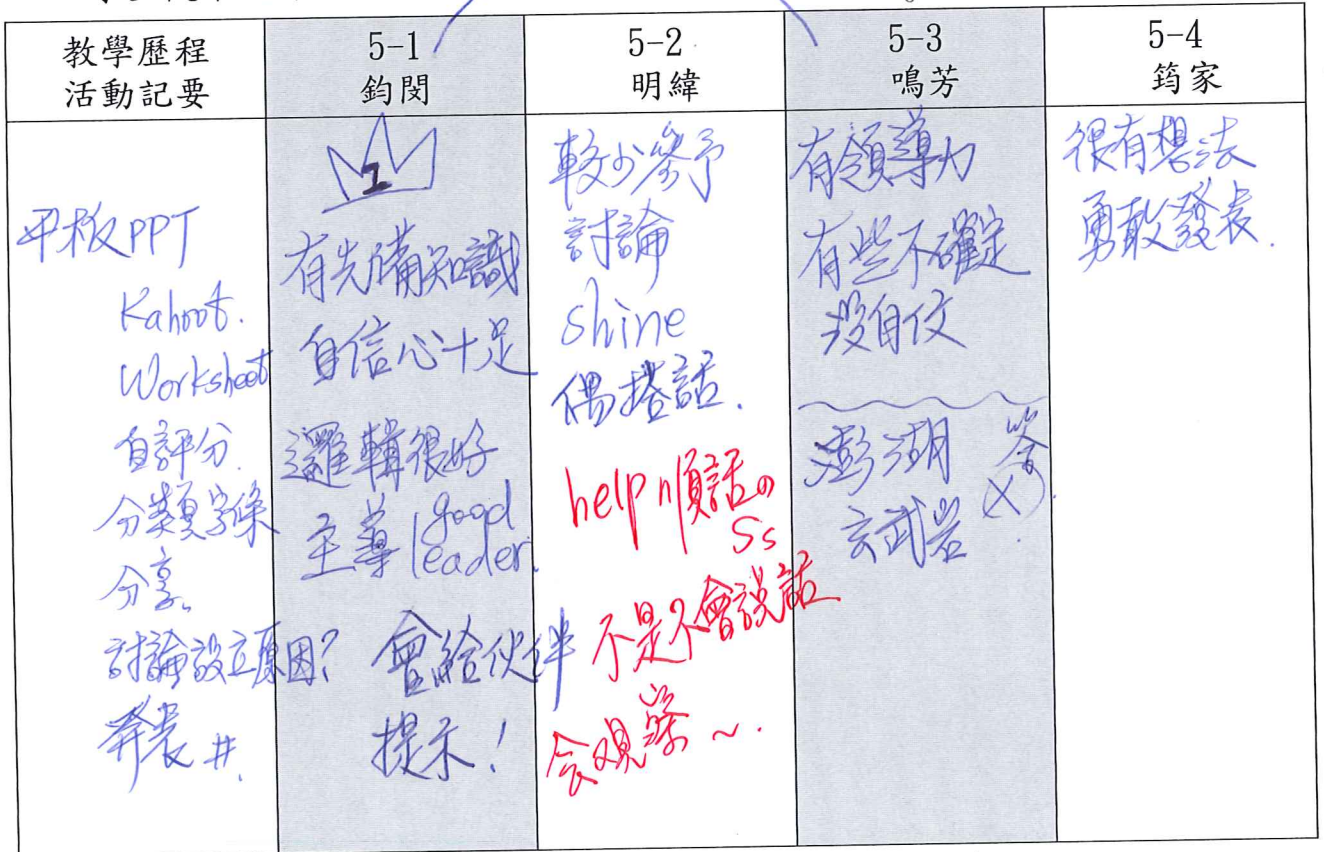 教學歷程
活動記要
5-1
鈞閔
5-2
明緯
5-3
鳴芳
5-4
筠家
平板PPT
Kahoot.
Worksheet
自評分.
分類字條
分享。
討論設立原因?
發表#.
1
有先備知識
自信心十足
邏輯很好
主導 good
leader.
會給伙伴
提示!
較少參予
討論
shine
偶搭話.
help 順話の
Ss
不是不會說話
会观察~.
有領導力
有些不確定
沒自信
澎湖 答
玄武岩 (X).
很有想法
勇敢發表.